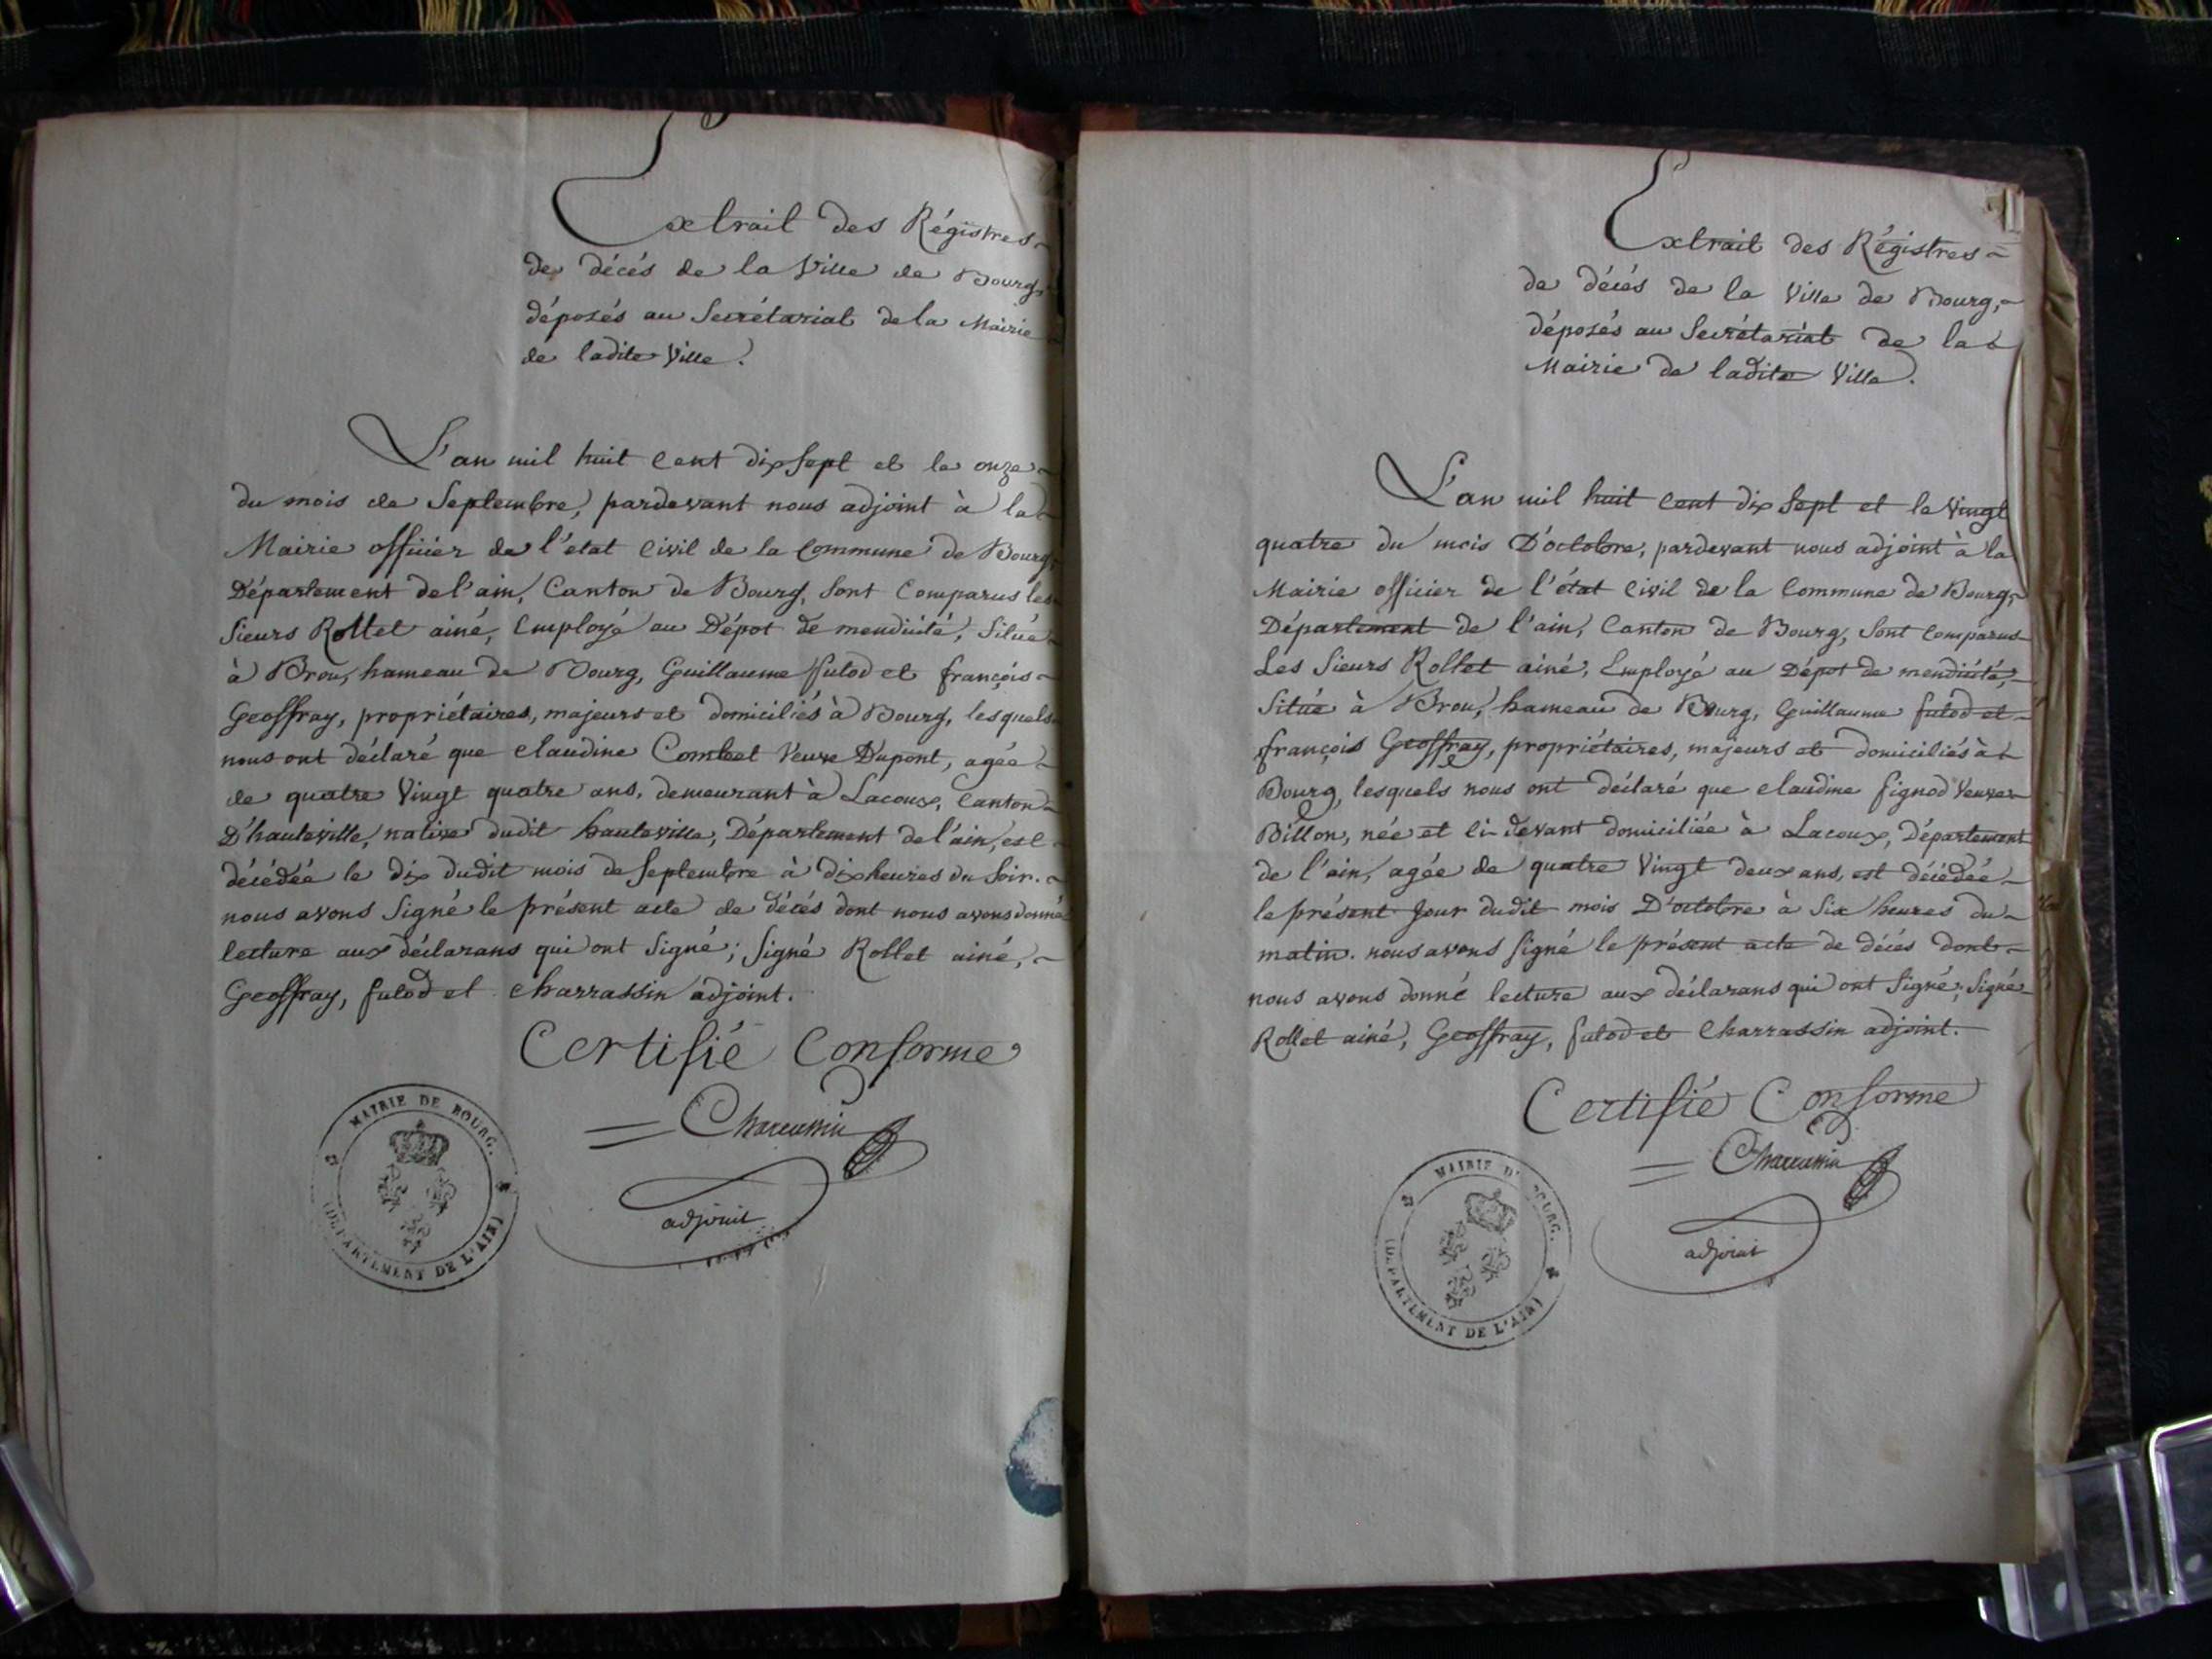 Extrait des Régistres
de décés de la Ville de Bourg,
déposés au Secrétariat de la Mairie
de ladite Ville.
L'an mil huit cent dix sept et le onze
du mois de Septembre, pardevant nous adjoint à la
Mairie officier de l'etat Civil de la Commune de Bourg,
Département de l'ain, Canton de Bourg, sont Comparus les
Sieurs Rollet ainé, Employé au Dépot de mendicité, Situé
à Brou, hameau de Bourg, Guillaume futod et françois
Geoffray, propriétaires, majeurs et domiciliés à Bourg, lesquels
nous ont déclaré que Claudine Combet Veuve Dupont, agée
de quatre Vingt quatre ans, demeurant à Lacoux, Canton
D'hauteville, native dudit hauteville, Département de l'ain, est
décédée le dix dudit mois de Septembre à dix heures du Soir.
nous avons Signé le présent acte de décés dont nous avons donné
lecture aux déclarans qui ont Signé; Signé Rollet ainé,
Geoffray, futod et Charrassin adjoint.
Certifié Conforme
Charrassin
adjoint
MAIRIE DE BOURG.
(DEPARTEMENT DE L'AIN)
Extrait des Régistres
de décés de la Ville de Bourg,
déposés au Secrétariat de la
Mairie de ladite Ville.
L'an mil huit cent dix Sept et le Vingt
quatre du mois D'octobre, pardevant nous adjoint à la
Mairie officier de l'état Civil de la Commune de Bourg,
Département de l'ain, Canton de Bourg, Sont Comparus
Les Sieurs Rollet ainé, Employé au Dépot de mendicité,
Situé à Brou, hameau de Bourg, Guillaume futod et
françois Geoffray, propriétaires, majeurs et domiciliés à
Bourg, lesquels nous ont déclaré que Claudine Signod Veuve
Billon, née et ci-devant domiciliée à Lacoux, Département
de l'ain, agée de quatre Vingt deux ans, est décédée
le présent Jour dudit mois D'octobre à Six heures du
matin. nous avons Signé le présent acte de décés dont
nous avons donné lecture aux déclarans qui ont Signé; Signé
Rollet ainé, Geoffray, futod et Charrassin adjoint.
Certifié Conforme
Charrassin
adjoint
MAIRIE DE BOURG.
(DEPARTEMENT DE L'AIN)